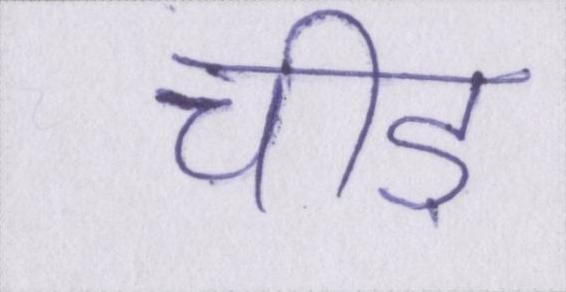 चीड़